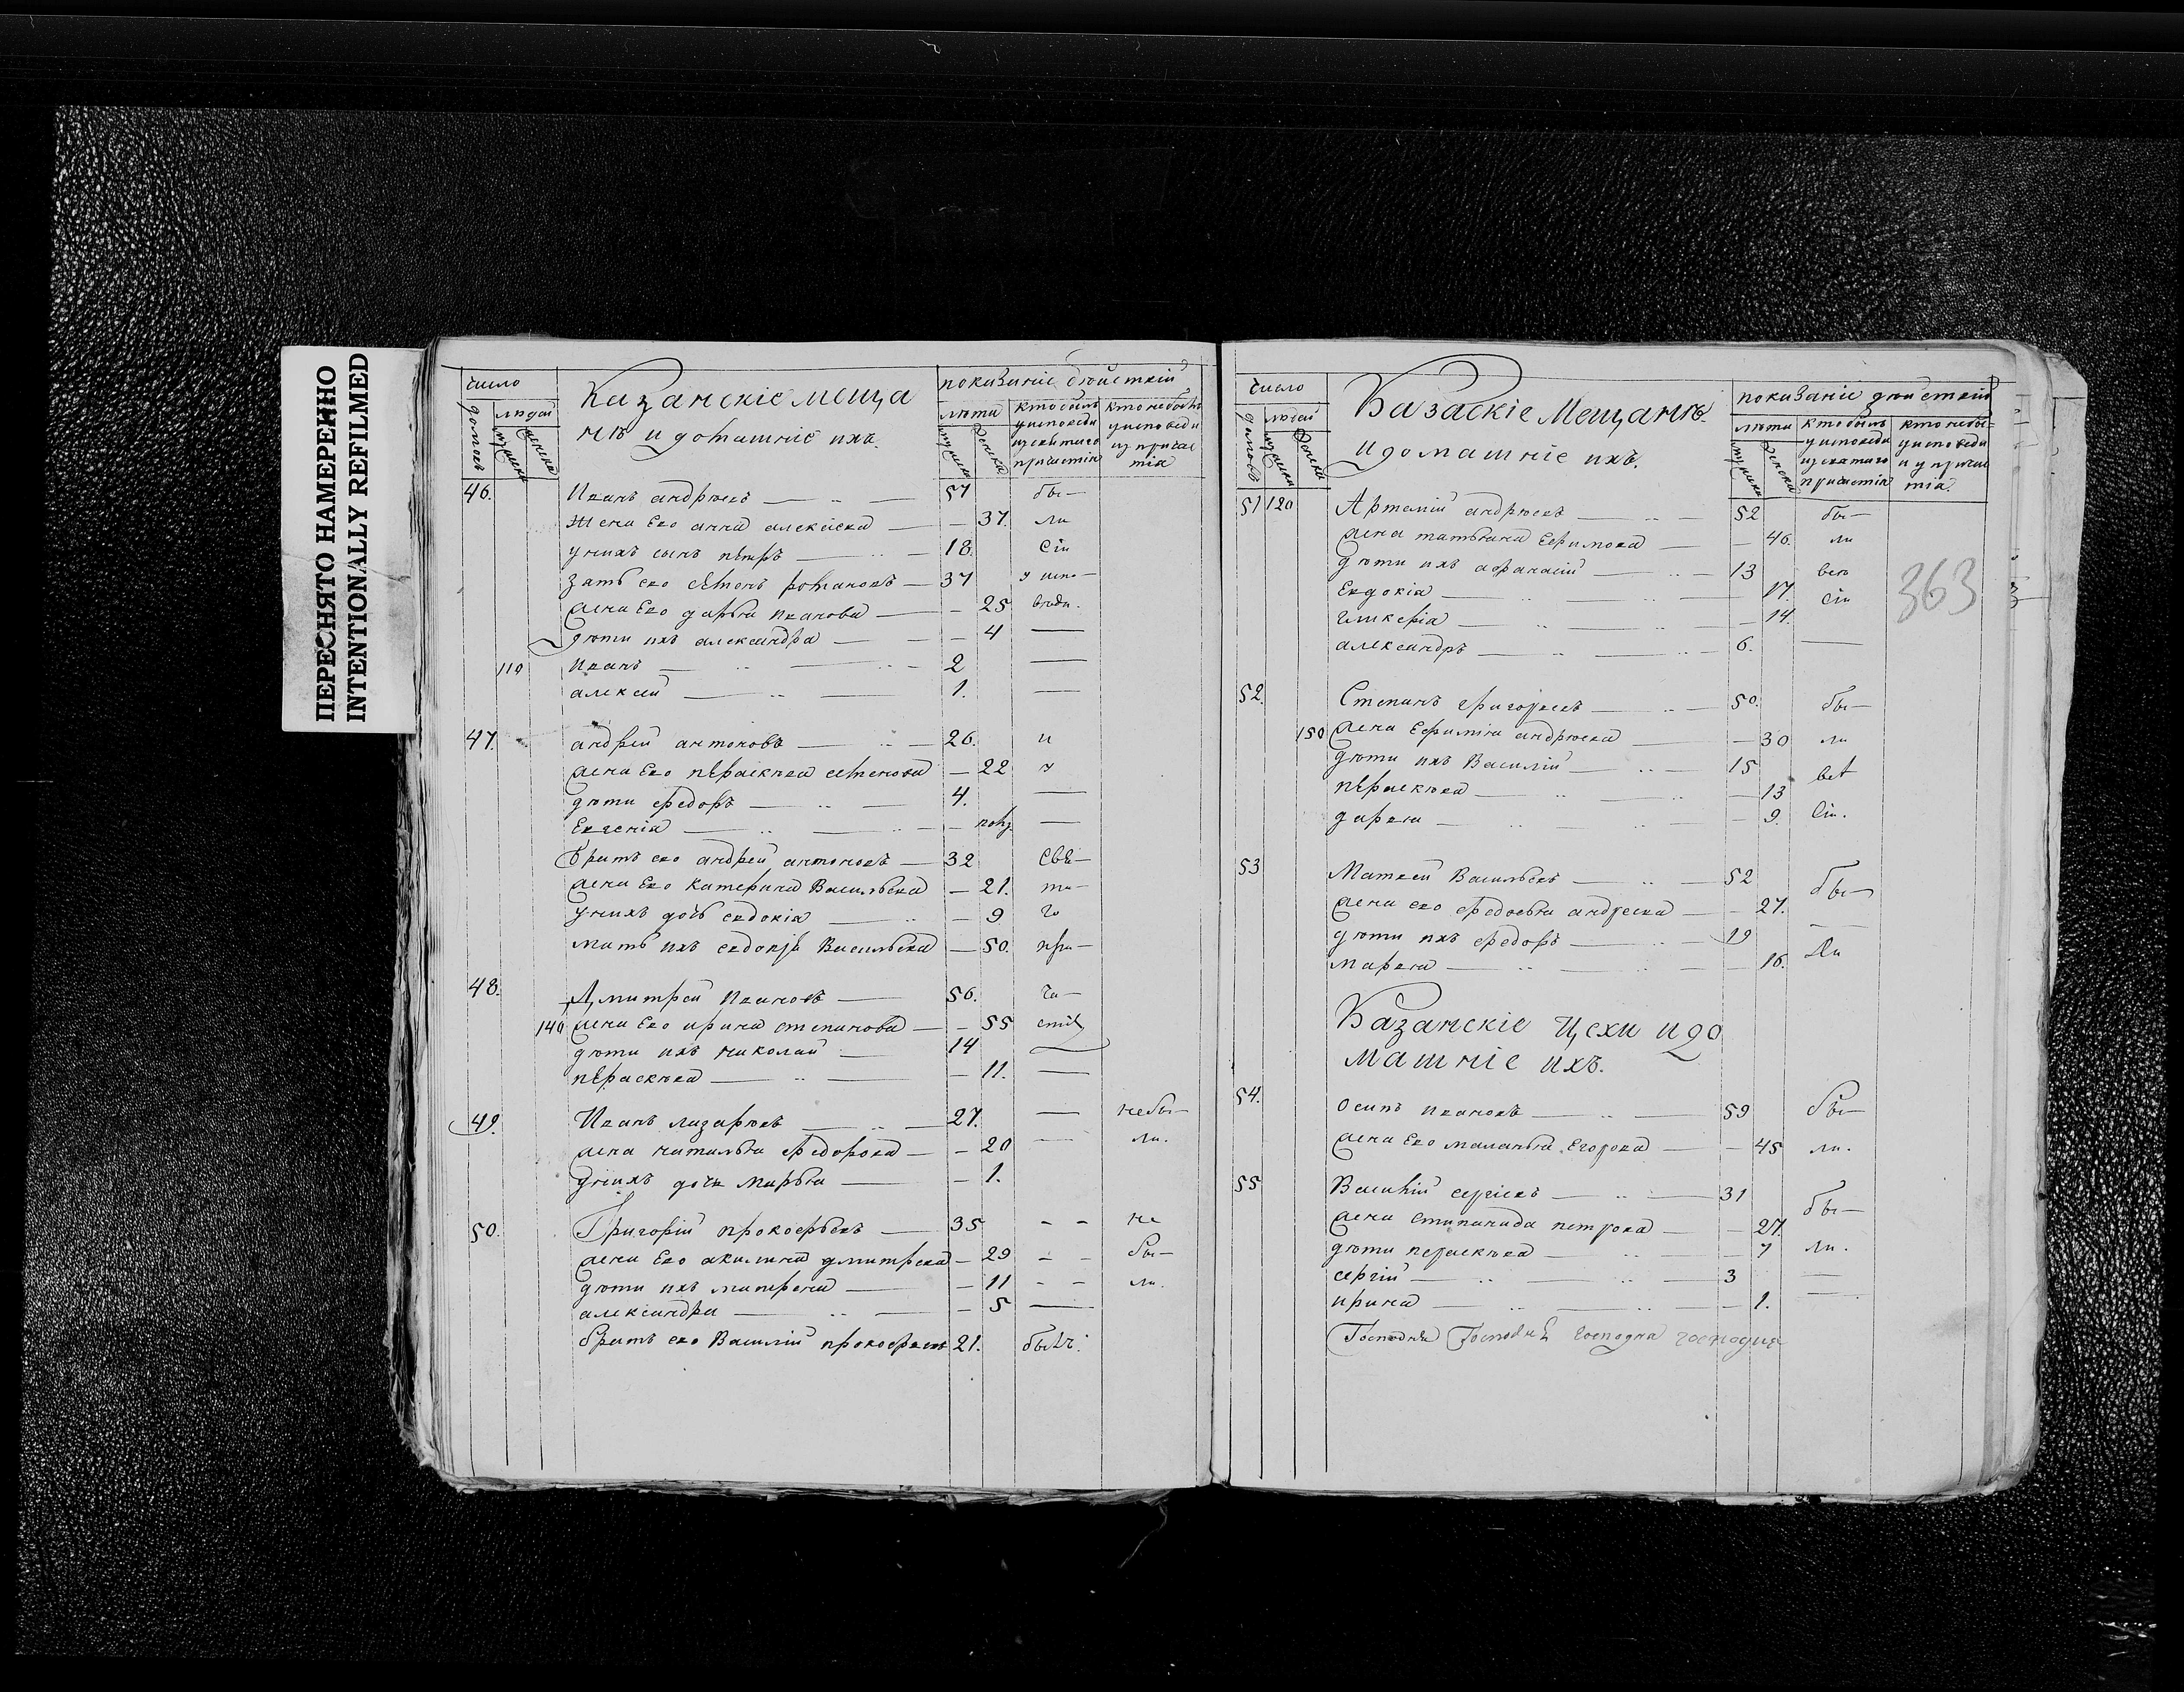 ПЕРЕСНЯТО НАМЕРЕННО
INTENTIONALLY REFILMED
число
домовъ
людей
мужеска
женска
Казанскіе меща
не и домашніе ихъ.
показаніе действій
лета
мужеска
женска
кто былъ
у исповеди
и святаго
причастія
кто небылъ
у исповеди
и причас
тія
46. Иванъ андреевъ 57 бы
жена Ево анна алексеева 37. ли
у нихъ сынъ петръ 18 Сіи
зять ево семенъ романовъ 37 у испо
жена Ево дарья иванова 25
дети ихъ александра 4
110 иванъ 2
алексей 1.
47. андрей антоновъ 26. и
жена Ево параскева семенова 22 у
дети федоръ 4.
Евгенія
братъ ево андрей антоновъ 32 свя
жена Ево катерина Васильева 21. та
у нихъ дочь евдокія 9 го
мать ихъ евдокія Васильева 50. при
48. Дмитрей ивановъ 56. ча
140 жена Ево ирина степанова 55 стія
дети ихъ николай 14
параскева 11.
49. Иванъ лазаревъ 27. небы
жена наталья федорова 20 ли.
у нихъ дочь марья 1.
50. Григорій прокофьевъ 35 не
жена Ево акилина дмитрева 29 бы
дети ихъ матрена 11 ли.
александра 5
братъ ево Василій прокофьевъ 21. былъ.
число
домовъ
людей
мужеска
женска
Казаскіе Мещане
и домашніе ихъ.
показаніе действій
лета
мужеска
женска
кто былъ
у исповеди
и святаго
причастія
кто небы
у исповеди
и у причас
тія.
363
51 120 Артемій андреевъ 52 бы
жена татьяна Ефимова 46. ли
дети ихъ афанасій 13 все
Евдокія 17. сіи
гликерія 14.
александръ 6.
52. Степанъ григорьевъ 50. бы
150 жена Ефимія андреева 30 ли
дети ихъ Василій 15 все
параскева 13
дарья 9. Сіи.
53 Матвей Васильевъ 52 бы
жена ево федосья андреева 27.
дети ихъ федоръ 19 ли
марья 16.
Казанскіе цехи и до
машніе ихъ.
54. осипъ ивановъ 59 бы
жена Ево маланья Егорова 45 ли.
55 Василій сергіевъ 31 бы
жена степанида петрова 27.
дети параскева 7 ли.
сергій 3
ирина 1.